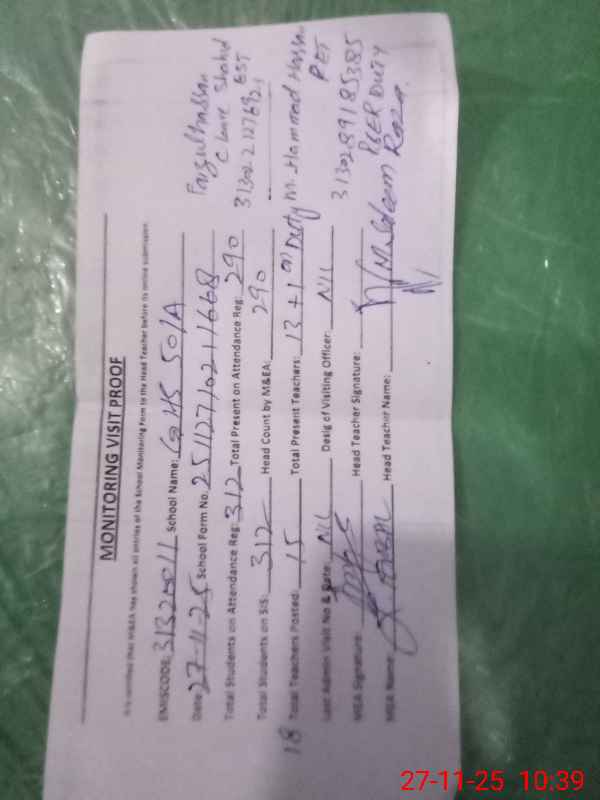 MONITORING VISIT PROOF
It is certified that M&EA has shown all entries of the School Monitoring Form to the Head Teacher before its online submission.
EMISCODE: School Name: GHS 50/A
Date: 27-11-25 School Form No. 251127102111668
Total Students on Attendance Reg: 312 Total Present on Attendance Reg: 290
Total Students on SIS: 312 Head Count by M&EA: 290
18 Total Teachers Posted: 15 Total Present Teachers: 13 + 1 on Duty
Last Admin Visit No & Date: NIL Desig of Visiting Officer: NIL
M&EA Signature: Head Teacher Signature:
M&EA Name: Head Teacher Name: M. Saleem Raza
C Leave Shahid
EST
M. Hammad Hassan
PET
3130289185385
PSER Duty
27-11-25 10:39